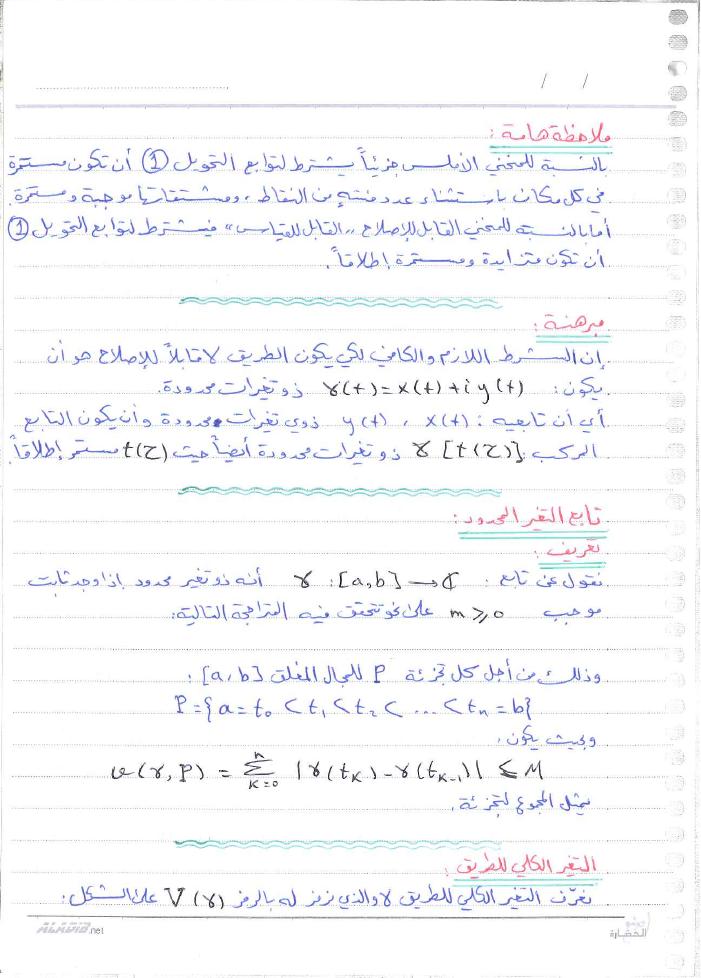 / /
ملاحظة هامة :
بالنسبة للمنحني الأملس جزئياً يشترط لتوابع التحويل ① أن تكون مستمرة
في كل مكان باستثناء عدد منته من النقاط ، ومشتقاتها موجبة ومستمرة.
أما بالنسبة للمنحني القابل للإصلاح ,,القابل للقياس" فيشترط لتوابع التحويل ①
أن تكون متزايدة ومستمرة إطلاقاً.
مبرهنة :
إن الشرط اللازم والكافي لكي يكون الطريق γ قابلاً للإصلاح هو أن
يكون : γ(t) = x(t) + i y(t) ذو تغيرات محدودة.
أي أن تابعيه : x(t) ، y(t) ذوي تغيرات محدودة وأن يكون التابع
المركب : γ[t(τ)] ذو تغيرات محدودة أيضاً حيث t(τ) مستمر إطلاقاً.
تابع التغير المحدود :
تعريف :
نقول عن تابع : γ : [a,b] → ℂ أنه ذو تغير محدود إذا وجد ثابت
موجب m ≥ 0 على نحو تتحقق فيه المتراجحة التالية :
وذلك من أجل كل تجزئة P للمجال المغلق [a,b] :
P = {a = t₀ < t₁ < t₂ < ... < tₙ = b}
وبحيث يكون :
v(γ,P) = Σ_{K=0}^{n} |γ(t_K) − γ(t_{K-1})| ≤ M
يمثل المجموع لتجزئة.
التغير الكلي للطريق :
نعرّف التغير الكلي للطريق γ والذي نرمز له بالرمز V(γ) على الشكل :
ALADIB.net
الحضارة